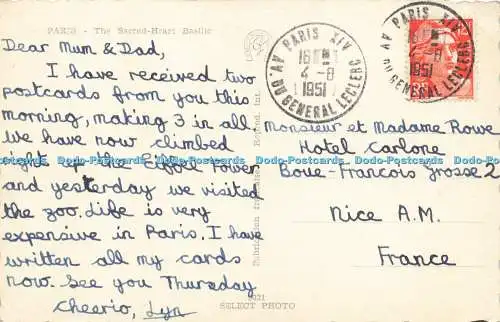 PARIS - The Sacred-Heart Basilic
Dear Mum & Dad,
I have received two
postcards from you this
morning, making 3 in all.
we have now climbed
right up the Eiffel Tower
and yesterday we visited
the zoo. Life is very
expensive in Paris. I have
written all my cards
now. See you Thursday
Cheerio, Lyn
PARIS XIV
16
4-8
1951
AV. DU GENERAL LECLERC
PARIS XIV
16
-8
1951
AV. DU GENERAL LECLERC
Monsieur et Madame Rowe
Hotel Carlone
Boue-Francois grosse 2
Nice A.M.
France
SELECT PHOTO
Dodo-Postcards Dodo-Postcards Dodo-Postcards